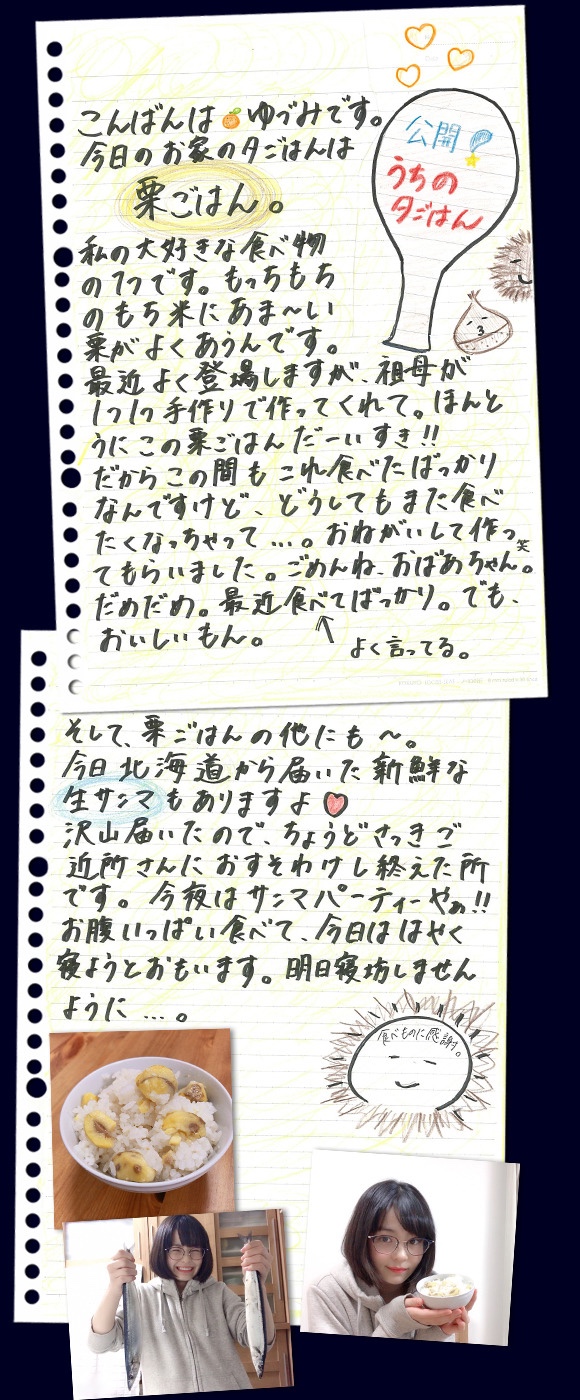 こんばんは🍊ゆづみです。
今日のお家の夕ごはんは
栗ごはん。
公開
うちの
夕ごはん
私の大好きな食べ物
の1つです。もっちもち
のもち米にあま〜い
栗がよくあうんです。
最近よく登場しますが、祖母が
1つ1つ手作りで作ってくれて。ほんと
うにこの栗ごはんだーいすき!!
だからこの間もこれ食べたばっかり
なんですけど、どうしてもまた食べ
たくなっちゃって…。おねがいして作っ
てもらいました。ごめんね、おばあちゃん。笑
だめだめ。最近食べてばっかり。でも、
おいしいもん。
↑よく言ってる。
そして、栗ごはんの他にも〜。
今日北海道から届いた新鮮な
生サンマもありますよ♥
沢山届いたので、ちょうどさっきご
近所さんにおすそわけし終えた所
です。今夜はサンマパーティーやぁ!!
お腹いっぱい食べて、今日ははやく
寝ようとおもいます。明日寝坊しません
ように…。
食べものに感謝。